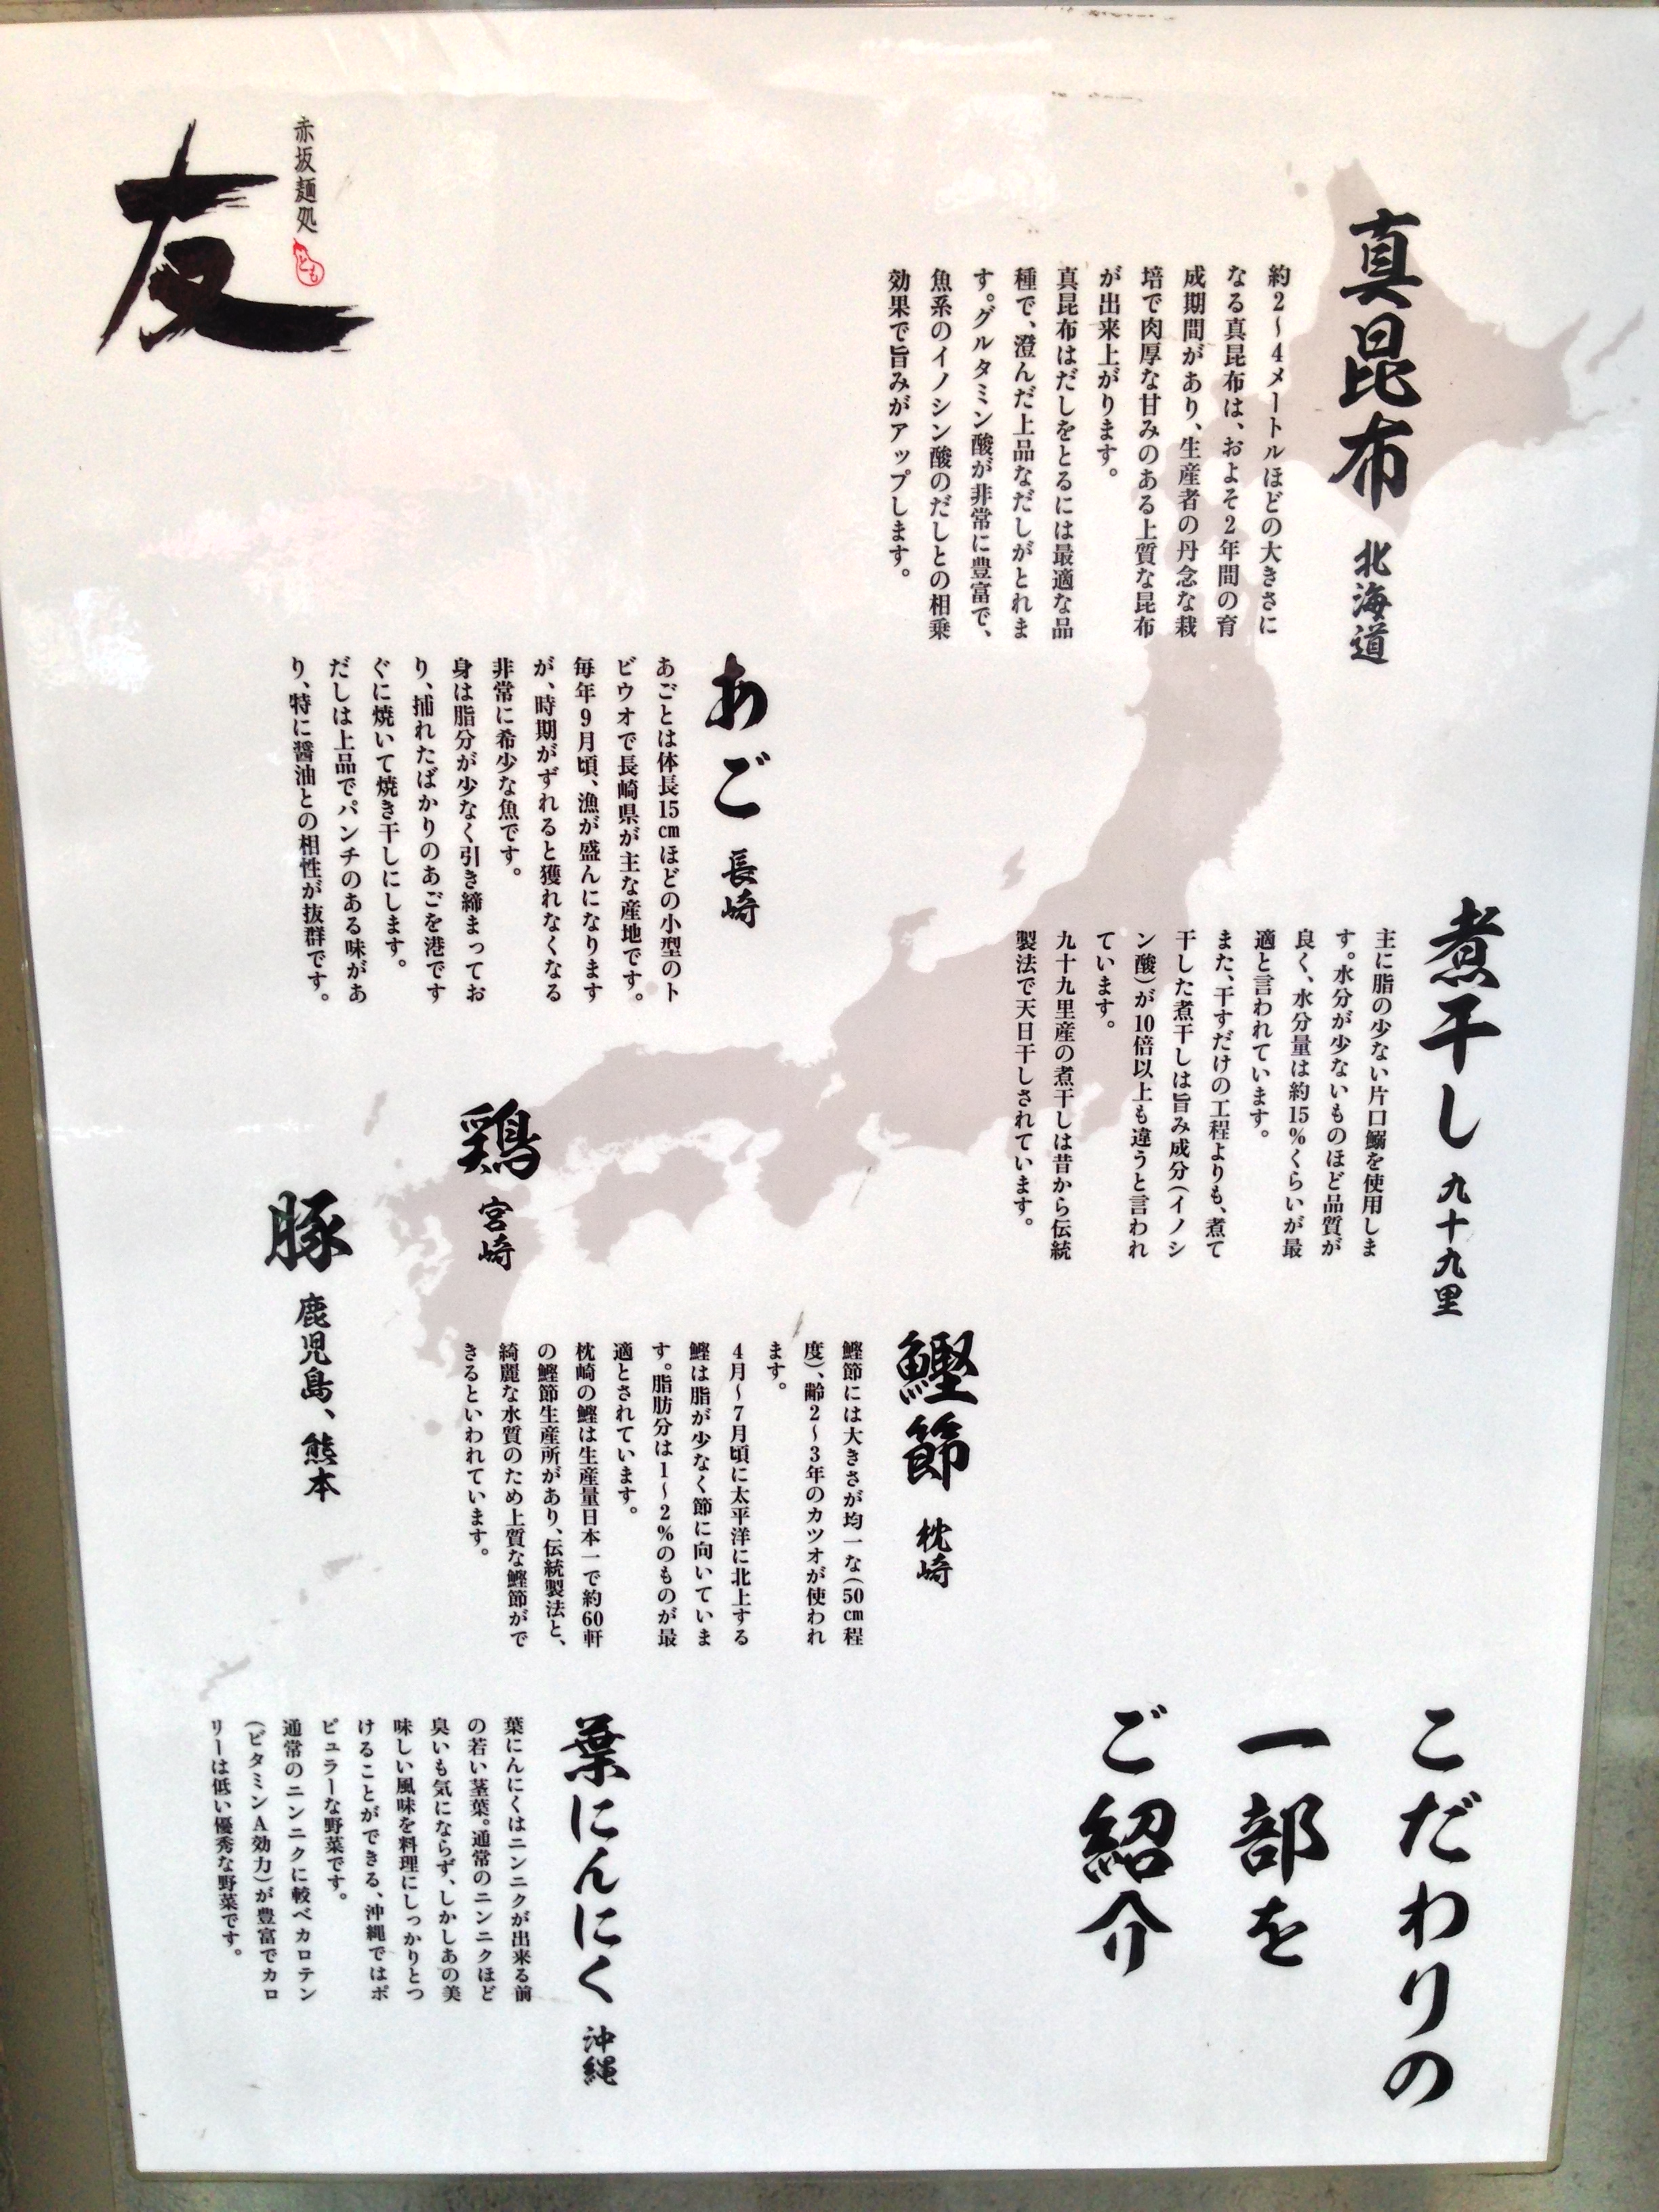 こだわりの
一部を
ご紹介
真昆布 北海道
約2〜4メートルほどの大きさに
なる真昆布は、およそ2年間の育
成期間があり、生産者の丹念な栽
培で肉厚な甘みのある上質な昆布
が出来上がります。
真昆布はだしをとるには最適な品
種で、澄んだ上品なだしがとれま
す。グルタミン酸が非常に豊富で、
魚系のイノシン酸のだしとの相乗
効果で旨みがアップします。
煮干し 九十九里
主に脂の少ない片口鰯を使用しま
す。水分が少ないものほど品質が
良く、水分量は約15%くらいが最
適と言われています。
また、干すだけの工程よりも、煮て
干した煮干しは旨み成分(イノシ
ン酸)が10倍以上も違うと言われ
ています。
九十九里産の煮干しは昔から伝統
製法で天日干しされています。
あご 長崎
あごとは体長15cmほどの小型のト
ビウオで長崎県が主な産地です。
毎年9月頃、漁が盛んになります
が、時期がずれると獲れなくなる
非常に希少な魚です。
身は脂分が少なく引き締まってお
り、捕れたばかりのあごを港です
ぐに焼いて焼き干しにします。
だしは上品でパンチのある味があ
り、特に醤油との相性が抜群です。
鶏 宮崎
豚 鹿児島、熊本
鰹節 枕崎
鰹節には大きさが均一な(50cm程
度)、齢2〜3年のカツオが使われ
ます。
4月〜7月頃に太平洋に北上する
鰹は脂が少なく節に向いていま
す。脂肪分は1〜2%のものが最
適とされています。
枕崎の鰹は生産量日本一で約60軒
の鰹節生産所があり、伝統製法と、
綺麗な水質のため上質な鰹節がで
きるといわれています。
葉にんにく 沖縄
葉にんにくはニンニクが出来る前
の若い茎葉。通常のニンニクほど
臭いも気にならず、しかしあの美
味しい風味を料理にしっかりとつ
けることができる、沖縄ではポ
ピュラーな野菜です。
通常のニンニクに較べカロテン
(ビタミンA効力)が豊富でカロ
リーは低い優秀な野菜です。
赤坂麺処
とも
友